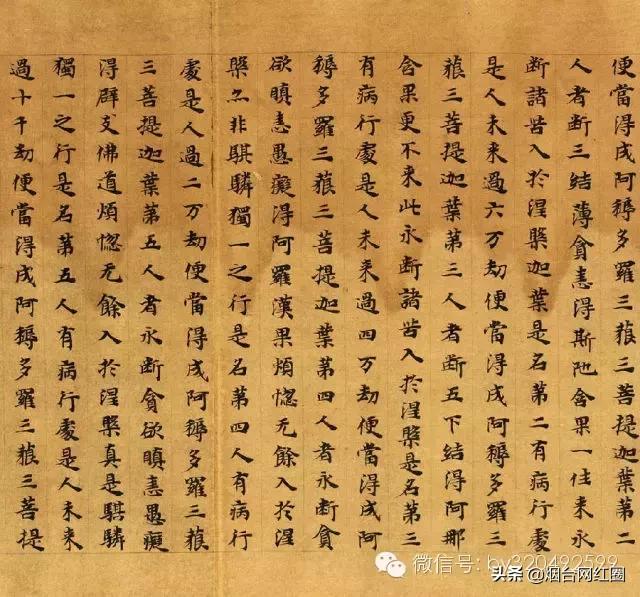 便當得成阿耨多羅三藐三菩提迦葉第二
人者斷三結薄貪恚得斯陁含果一往来永
斷諸苦入於涅槃迦葉是名第二有病行處
是人未来過六万劫便當得成阿耨多羅三
藐三菩提迦葉第三人者斷五下結得阿那
含果更不来此永斷諸苦入於涅槃是名第三
有病行處是人未来過四万劫便當得成阿
耨多羅三藐三菩提迦葉第四人者永斷貪
欲瞋恚愚癡得阿羅漢果煩惱无餘入於涅
槃亦非騏驎獨一之行是名第四人有病行
處是人過二万劫便當得成阿耨多羅三藐
三菩提迦葉第五人者永斷貪欲瞋恚愚癡
得辟支佛道煩惱无餘入於涅槃真是騏驎
獨一之行是名第五人有病行處是人未来
過十千劫便當得成阿耨多羅三藐三菩提
微信号: by320492599
头条 @烟台网红圈